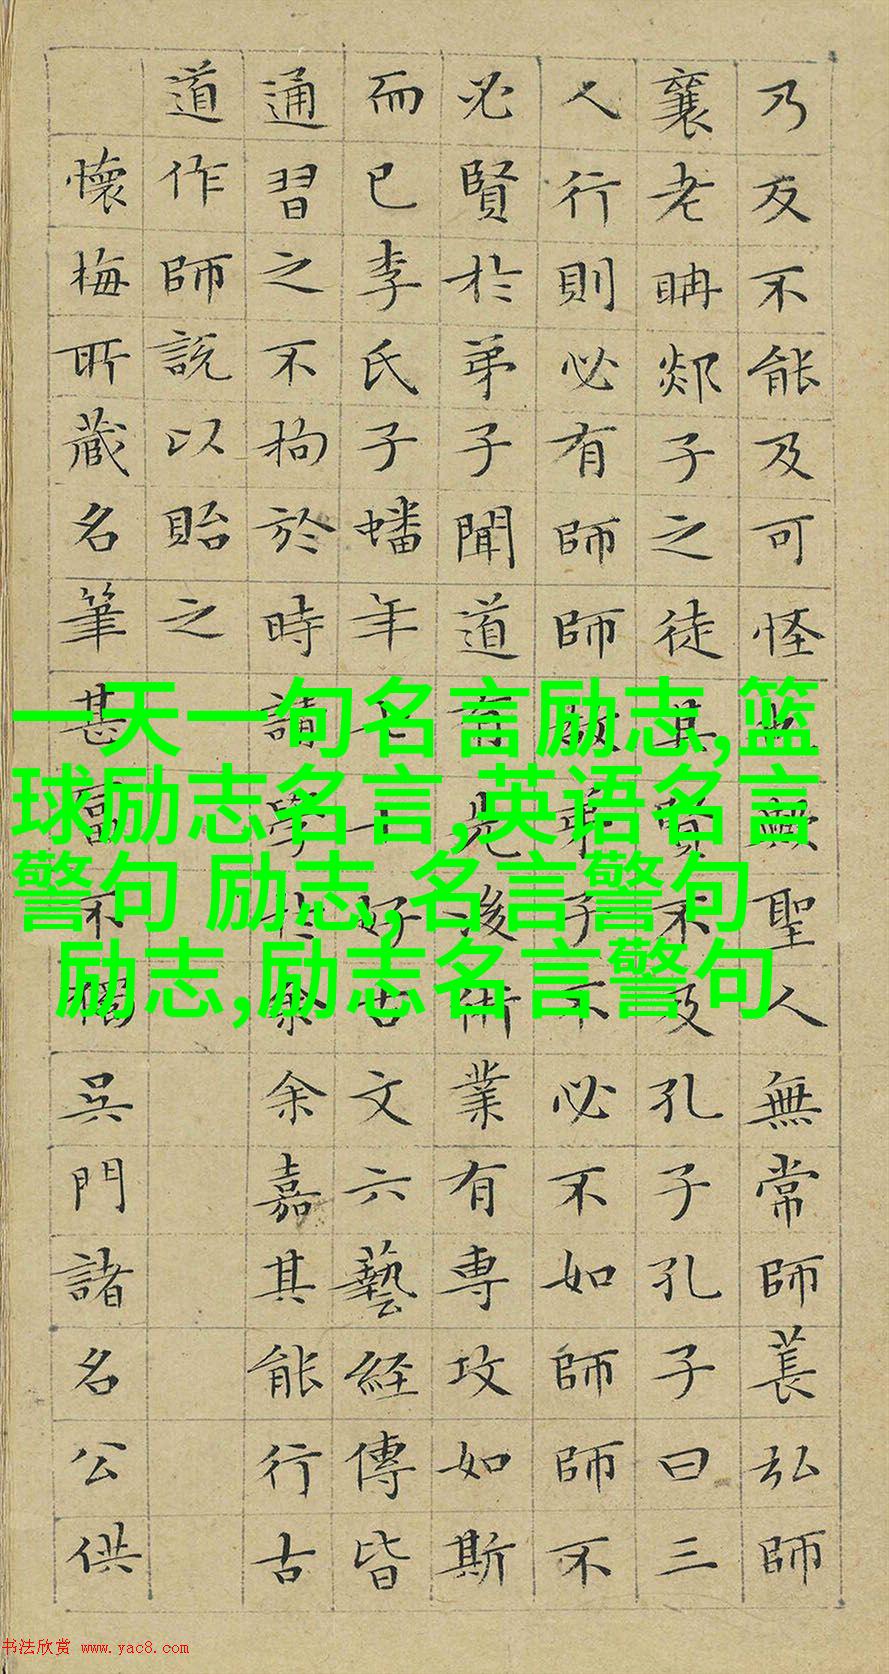 乃反不能及可怪也歟聖人無常師萇弘師
襄老聃郯子之徒其賢不及孔子孔子曰三
人行則必有師師故弟子不必不如師師不
必賢於弟子聞道有先後術業有專攻如斯
而已李氏子蟠年十七好古文六藝經傳皆
通習之不拘於時請學於余余嘉其能行古
道作師說以貽之
懷梅所藏名筆甚富不獨吳門諸名公供
一天一句名言励志,篮
球励志名言,英语名言
警句 励志,名言警句
励志,励志名言警句
书法欣赏 www.yac8.com